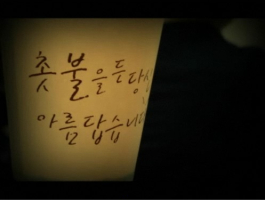 촛불을 든 당신
아름답습니다